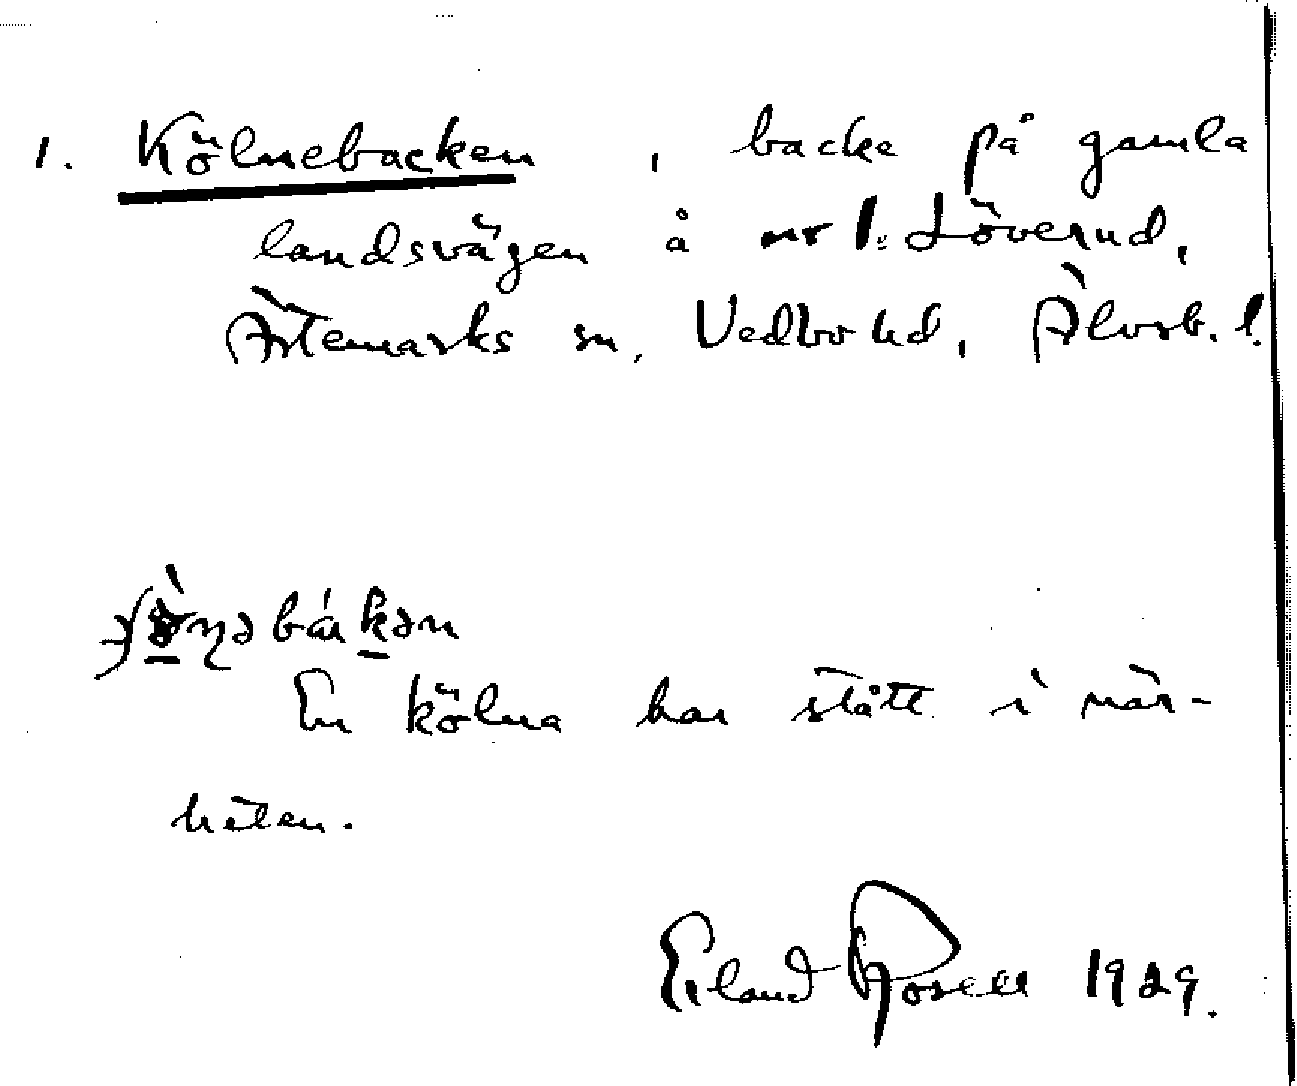 1. Kölnebacken, backe på gamla
landsvägen å nr 1: Löverud,
Ärtemarks sn, Vedbo hd, Älvsb. l.
En kölna har stått i när-
heten.
Erland Rosell 1929.